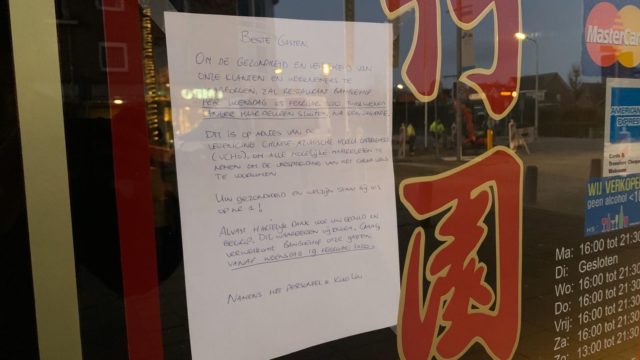 BESTE GASTEN,
OM DE GEZONDHEID EN VEILIGHEID VAN
ONZE KLANTEN EN WERKNEMERS TE
WAARBORGEN, ZAL RESTAURANT BAMBOEHOF
PER WOENSDAG 05 FEBRUARI 2020 TWEE WEKEN
HAAR DEUREN SLUITEN,
DIT IS OP ADVIES VAN DE
VERENIGING CHINESE-AZIATISCHE HORECA ONDERNEMERS
(VCHO), OM ALLE MOGELIJKE MAATREGELEN TE
NEMEN OM DE VERSPREIDING VAN HET CORONA VIRUS
TE VOORKOMEN.
UW GEZONDHEID EN WELZIJN STAAN BIJ ONS
OP NR. 1!
ALVAST HARTELIJK DANK VOOR UW GEDULD EN
BEGRIP, DIT WAARDEREN WIJ ENORM. GRAAG
VERWELKOMT BAMBOEHOF ONZE GASTEN
VANAF WOENSDAG 19 FEBRUARI 2020.
NAMENS HET PERSONEEL &
竹
園
MasterCard
AMERICAN
EXPRESS
Cards
Welcome
WIJ VERKOPEN
geen alcohol <18
Ma: 16:00 tot 21:30
Di: Gesloten
Wo: 16:00 tot 21:30
Do: 16:00 tot 21:30
Vr: 16:00 tot 21:30
Za: 16:00 tot 21:30
Zo: 13:00 tot 21:30